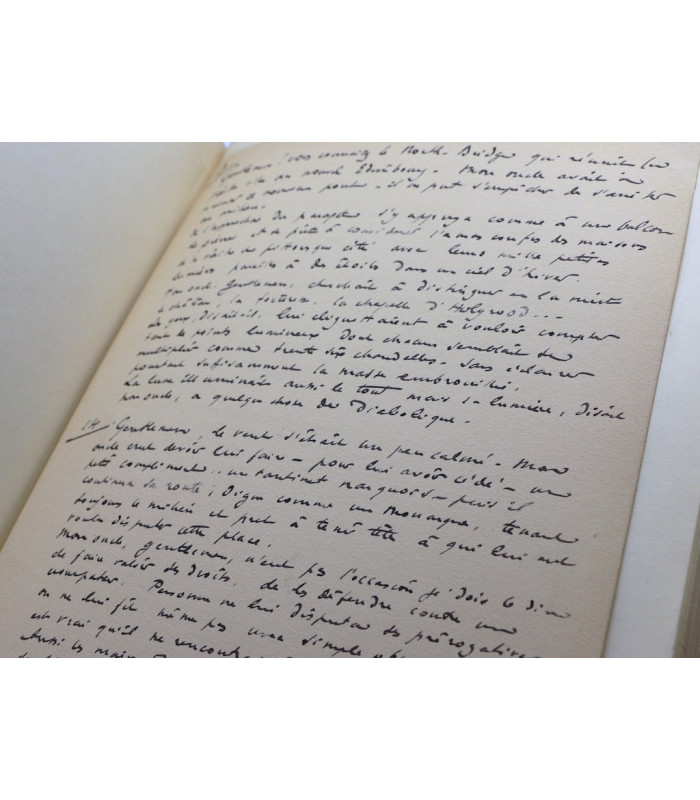 Gentlemen ! vous connaissez le North-Bridge qui réunit la
vieille ville au nouvel Edimbourg. Mon oncle avait à
de nouveau pont - il ne put s'empêcher de s'arrêter
au milieu.
Il s'approcha du parapet s'y appuya comme à un balcon
de pierre et se prit à considérer l'amas confus des maisons
de la vieille et pittoresque cité avec leurs mille petites
lumières pareilles à des étoiles dans un ciel d'hiver.
Mon oncle, Gentlemen, cherchait à distinguer en la nuit
le château, la forteresse, la chapelle d'Holyrood...
les yeux, disait-il, lui clignotaient à vouloir compter
tous les points lumineux dont chacun semblait se
multiplier comme trente six chandelles - sans éclairer
pourtant suffisamment la masse embrouillée.
La lune illuminait aussi le tout mais sa lumière, disait
mon oncle, a quelque chose de diabolique.
14/ Gentlemen, le vent s'était un peu calmé. Mon
oncle crut devoir lui faire - pour lui avoir cédé - un
petit compliment un tantinet narquois - puis il
continua sa route, digne comme un monarque, tenant
toujours le milieu et prêt à tenir tête à qui lui eut
voulu disputer cette place.
Mon oncle, gentlemen, n'eut pas l'occasion je dois le dire
de faire valoir ses droits, de les défendre contre un
usurpateur. Personne ne lui disputa ses prérogatives
on ne lui fit même pas une simple
est vrai qu'il ne rencontra
aussi les